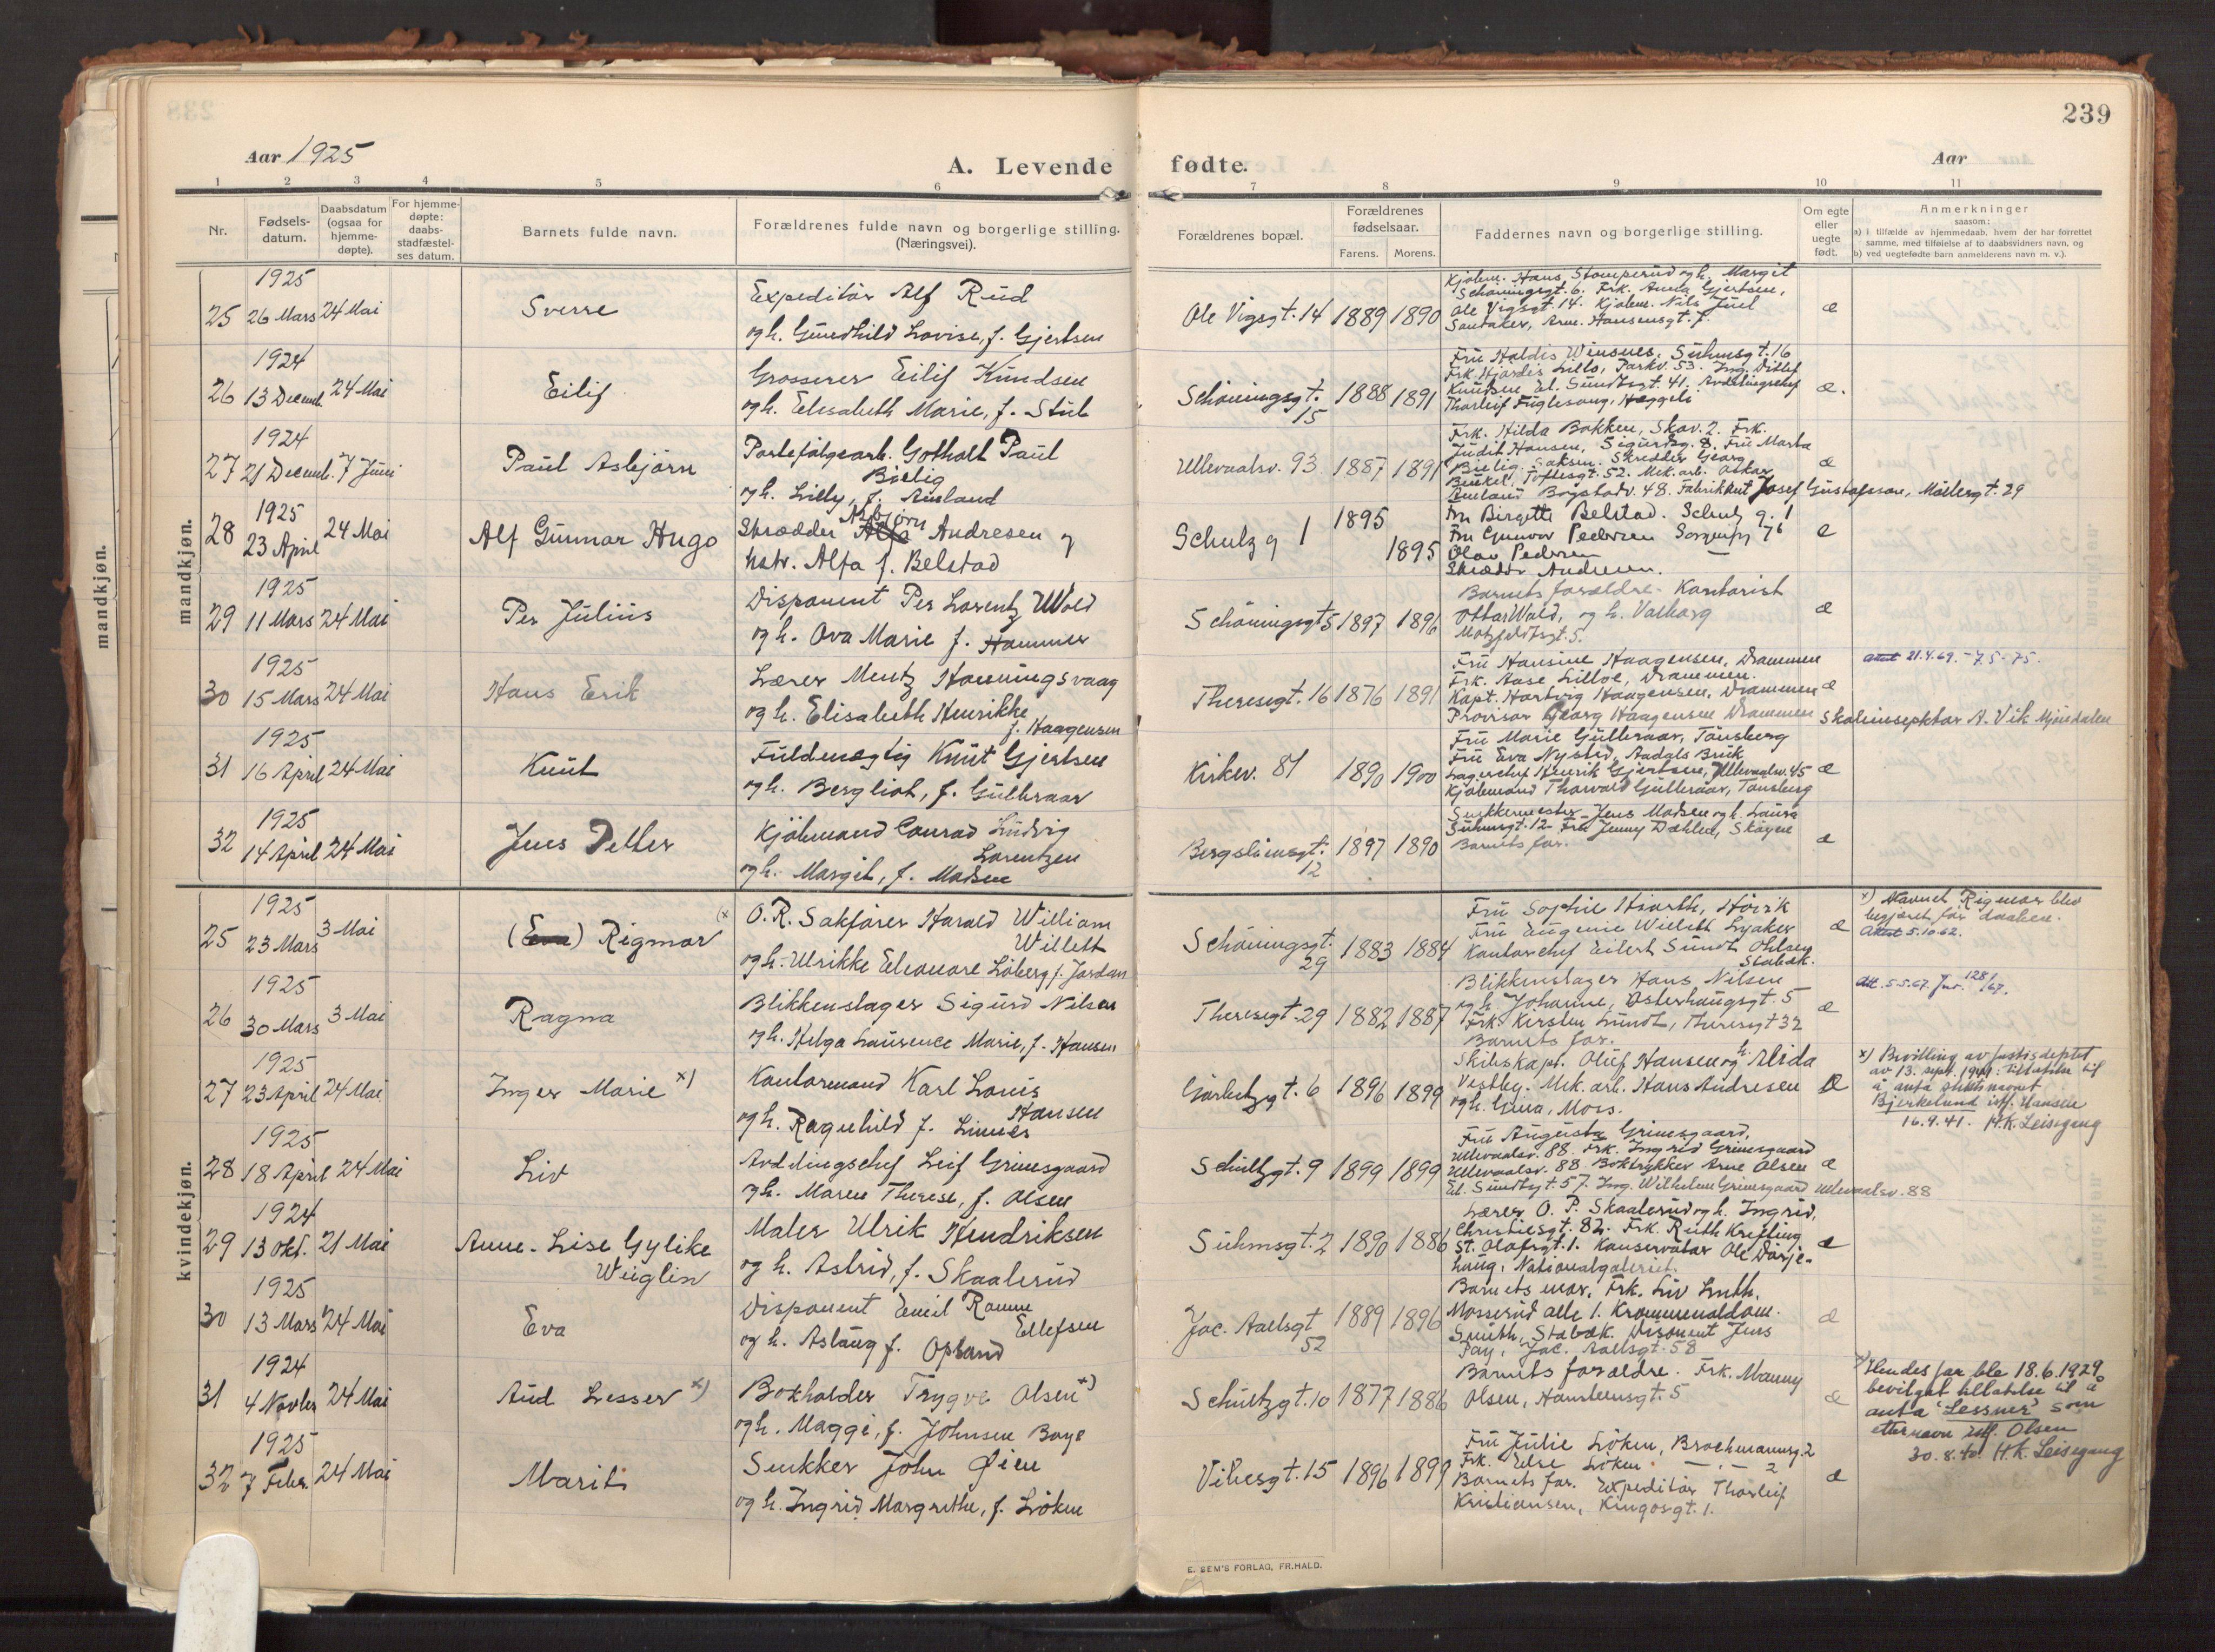 239
Aar 1925
A. Levende fødte.
Aar
1 2 3 4 5 6 7 8 9 10 11
Nr.
Fødsels-
datum.
Daabsdatum
(ogsaa for
hjemme-
døpte).
For hjemme-
døpte:
daabs-
stadfæstel-
ses datum.
Barnets fulde navn.
Forældrenes fulde navn og borgerlige stilling.
(Næringsvei).
Forældrenes bopæl.
Forældrenes
fødselsaar.
Farens. Morens.
Faddernes navn og borgerlige stilling.
Om egte
eller
uegte
født.
Anmerkninger
saasom:
a) i tilfælde av hjemmedaab, hvem der har forrettet
samme, med tilføielse af to daabsvidners navn, og
b) ved uegtefødte barn anmelderens navn m. v.).
mandkjøn.
mandkjøn.
1925
25 26 Mars 24 Mai
Sverre
Expeditør Alf Rud
og h. Gundhild Lovise, f. Gjertsen
Ole Vigsgt. 14 1889 1890
Kjøbm. Hans Stomperud og h. Margit
Schöningsgt. 6. Frk. Anna Gjertsen,
Ole Vigsgt. 14. Kjøbm. Nils Juel
Sandaker, Arne Hansensgt. 7.
æ
1924
26 13 Decemb. 24 Mai
Eilif
Grosserer Eilif Knudsen
og h. Elisabeth Marie, f. Stub
Schöningsgt.
15
1888 1891
Fru Haldis Winsnes, Suhmsgt. 16
Frk. Hjördis Lillo, Parkv. 53. Ing. Ditlef
Knudsen El. Sundtsgt. 41. Avdelingschef
Thorleif Fuglesang, Heggeli
æ.
1924
27 21 Decemb. 7 Juni
Paul Asbjørn
Portefølgearb. Gotholt Paul
Bielig
og h. Lilly, f. Amland
Ullevaalsv. 93 1887 1891
Frk. Hilda Bakken, Skov. 2. Frk.
Judit Hansen, Sigurdsg. 8. Fru Marta
Bielig. Saksen. Skredder Georg
Toftesgt. 52. Mek. arb. Oskar
Amland Bogstadv. 48. Fabrikkut Josef Gustafsson, Møllergt. 29
æ
1925
28 23 April 24 Mai
Alf Gunnar Hugo
Asbjørn
Skrædder Alfa Andresen og
hstr. Alfa f. Belstad
Schulz g 1 1895
1895
Fru Birgitte Belstad. Schulz g. 1
Fru Gunvor Pedersen Sorgenfrig 7 b
Olav Pedersen —
Skrædder Andresen.
e
1925
29 11 Mars 24 Mai
Per Julius
Disponent Per Lorentz Wold
og h. Ova Marie f. Hammer
Schöningsgt 5 1897 1896
Barnets forældre. Kontorist
Ottar Wold, og h. Valborg
Motzfeldtsgt. 5.
æ
1925
30 15 Mars 24 Mai
Hans Erik
Lærer Mentz Honningsvaag
og h. Elisabeth Henrikke
f. Haagensen
Theresegt. 16 1876 1891
Fru Hansine Haagensen, Drammen
Frk. Aase Lilloe, Drammen.
Kapt. Hartvig Haagensen, Drammen
Provisor Georg Haagensen Drammen Skoleinspektør A. Vik Mjøndalen
æ
attest 21.4.69. - 7.5.-75.
1925
31 16 April 24 Mai
Knut
Fuldmægtig Knut Gjertsen
og h. Bergliot, f. Gulbraar
Kirkev. 81 1890 1900
Fru Marie Gulbraar, Tønsberg
Fru Eva Nysted, Aadals Bruk
Lagerchef Henrik Gjertsen, Ullevaalsv. 45
Kjøbmand Thorvald Gulbraar, Tønsberg
æ
1925
32 14 April 24 Mai
Jens Petter
Kjøbmand Conrad Ludvig
Lorentzen
og h. Margit, f. Madsen
Bergsliensgt.
12
1897 1890
Snekkermester Jens Madsen og h. Laura
Suhmsgt. 12 Fru Jenny Dæhlen, Skøyen
Barnets far.
æ
kvindekjøn.
1925
25 23 Mars 3 Mai
(Eva) Rigmor (x
O. R. Sakfører Harald William
Willett
og h. Ulrikke Eleonore Löberg f. Jordan
Schöningsgt.
29
1883 1884
Fru Sophie Hiorth, Hövik
Fru Eugenie Willett Lysaker
Kontorchef Eilert Sundt Ohlsen
Stabæk.
æ
x) Navnet Rigmor blev
begjæret før daaben.
Attest 5.10.62.
1925
26 30 Mars 3 Mai
Ragna
Blikkenslager Sigurd Nilsen
og h. Helga Laurence Marie, f. Hansen
Theresegt. 29 1882 1887
Blikkenslager Hans Nilsen
og h. Johanne, Osterhaugsgt. 5
Frk. Kirsten Lundt, Theresegt 32
Barnets far.
æ
Att. 5.5.67. Jnr. 128/67.
1925
27 23 April 24 Mai
Inger Marie x)
Kontormand Karl Louis
Hansen
og h. Ragnhild f. Linnes
Gørbitzgt. 6 1896 1899
Skibskapt. Oluf Hansen og h. Alida
Vestby. Mek. arb. Hans Andresen
og h. Gina, Moss.
Æ
x) Bevilling av Justisdeptet
av 13. sept. 1941: tillatelse til
å anta slektsnavnet
Bjerkelund istf. Hansen
16.9.41. H.K. Leisegang
1925
28 18 April 24 Mai
Liv
Avdelingschef Leif Grimsgaard
og h. Maren Therese, f. Olsen
Schultzgt. 9 1899 1899
Fru Augusta Grimsgaard,
Ullevaalsv. 88. Frk. Ingrid Grimsgaard
Ullevaalsv. 88 Boktrykker Arne Olsen
El. Sundtsgt. 57. Ing. Wilhelm Grimsgaard Ullevaalsv. 88
æ
1924
29 13 Okt. 21 Mai
Anne-Lise Gylike
Wüglin
Maler Ulrik Hendriksen
og h. Astrid, f. Skaalerud
Suhmsgt. 2 1890 1886
Lærer O. P. Skaalerud og h. Ingrid,
Christiesgt. 82. Frk. Ruth Krefting
St. Olafsgt. 1. Konservator Ole Dørje-
haug, Nationalgaleriet.
æ
1925
30 13 Mars 24 Mai
Eva
Disponent Emil Ramm
Ellefsen
og h. Aslaug f. Opsand
Jac. Aallsgt
52
1889 1896
Barnets mor. Frk. Liv Smith.
Mosserud alle 1.
Smith, Stabæk. Disponent Jens
Pay, Jac. Aallsgt. 58
æ
1924
31 4 Novbr 24 Mai
Aud Lesser x)
Bokholder Trygve Olsen x)
og h. Maggi, f. Johnsen Boye
Schultzgt. 10 1877 1886
Barnets forældre. Frk. Manny
Olsen, Hansteensgt. 5
æ
x) Hendes far ble 18.6.1929
bevilget tillatelse til å
anta "Lessner" som
etternavn istf. Olsen
30.8.40. H.K. Leisegang
1925
32 7 Febr. 24 Mai
Marit
Snekker John Øien
og h. Ingrid Margrethe, f. Löken
Vibesgt. 15 1896 1899
Fru Julie Löken, Brochmannsg. 2
Frk. Else Löken — " — 2
Barnets far. Expeditør Thorleif
Kristiansen, Kingosgt. 1.
æ
E. SEM'S FORLAG, FR.HALD.